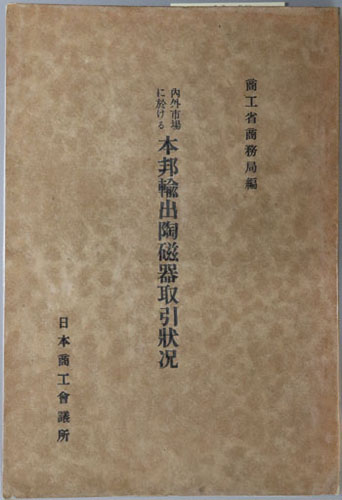 商工省商務局編
內外市場
に於ける
本邦輸出陶磁器取引狀况
日本商工會議所